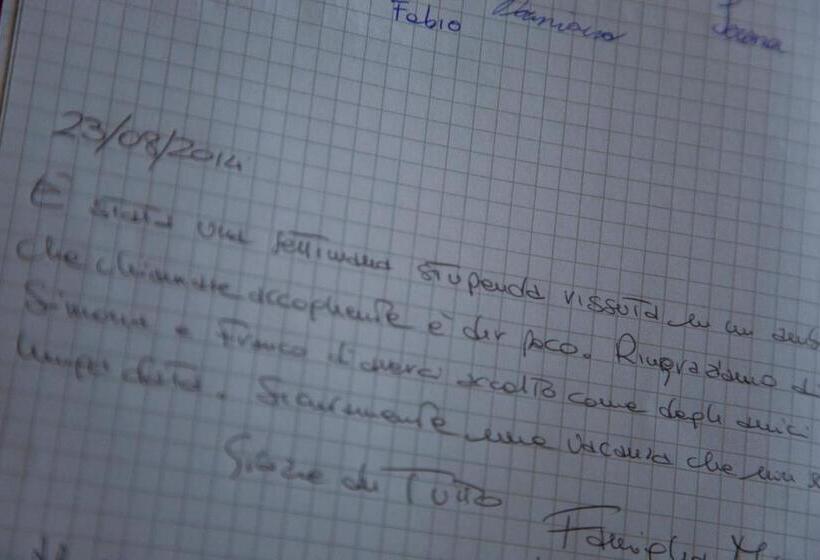 Fabio Damiano
23/08/2014
È stata una settimana stupenda vissuta in un
che chiamare accogliente è dir poco. Ringraziamo
Simona e Franco di averci accolto come degli amici
lunga data. Sicuramente una vacanza che non
Grazie di Tutto
Famiglia